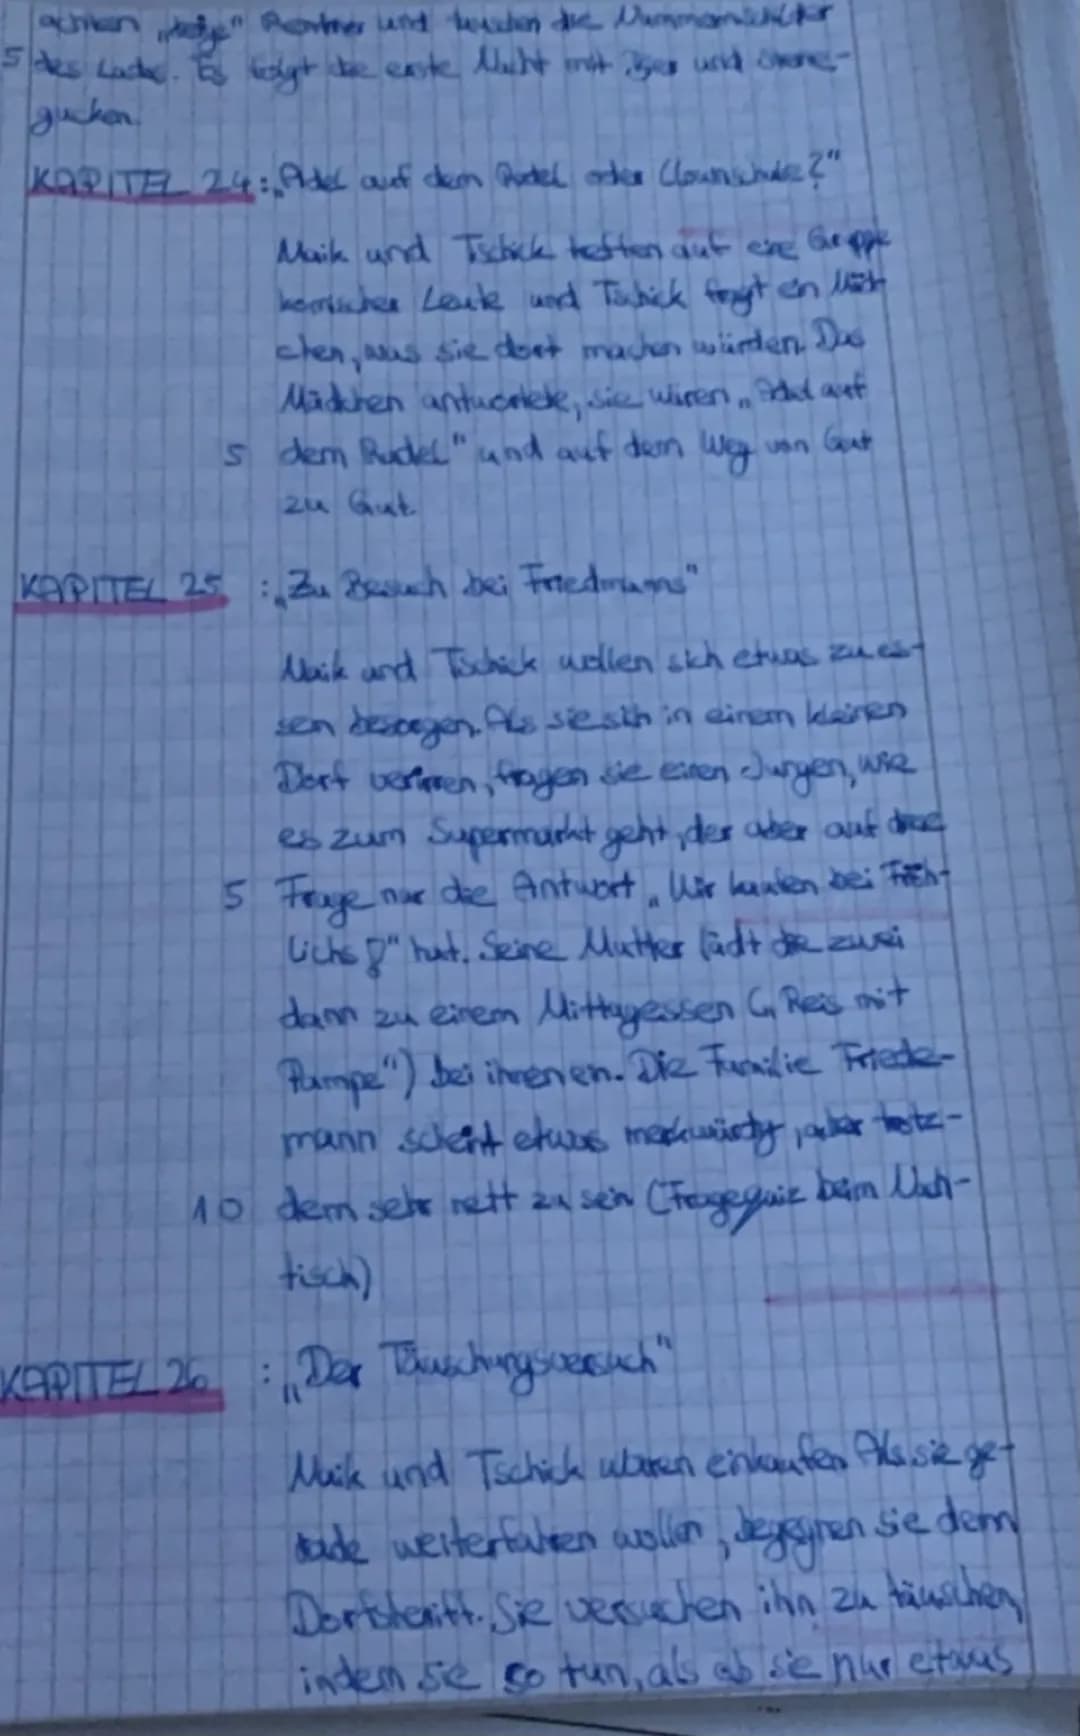 "beige" Rentner und tauschen die Nummernschilder
5 des Ladas. Es folgt die erste Nacht mit und Sterne-
gucken.
KAPITEL 24: „Adel auf dem Radel oder Clownschule?"
Maik und Tschick treffen auf eine Gruppe
komischer Leute und Tschick fragt ein Mäd-
chen, was sie dort machen würden. Das
Mädchen antwortete, sie wären „Adel auf
5 dem Radel" und auf dem Weg von Gut
zu Gut.
KAPITEL 25 : „Zu Besuch bei Friedmanns"
Maik und Tschick wollen sich etwas zu es-
sen besorgen. Als sie sich in einem kleinen
Dorf verirren, fragen sie einen Jungen, wie
es zum Supermarkt geht, der aber auf diese
5 Frage nur die Antwort „Wir kaufen bei Fröh-
lichs" hat. Seine Mutter lädt die zwei
dann zu einem Mittagessen („Reis mit
Pampe") bei ihnen ein. Die Familie Friede-
mann scheint etwas merkwürdig, aber trotz-
10 dem sehr nett zu sein (Fragequiz beim Nach-
tisch)
KAPITEL 26 : „Der Täuschungsversuch"
Maik und Tschick waren einkaufen. Als sie ge-
rade weiterfahren wollen, begegnen sie dem
Dorfsheriff. Sie versuchen ihn zu täuschen,
indem sie so tun, als ob sie nur etwas